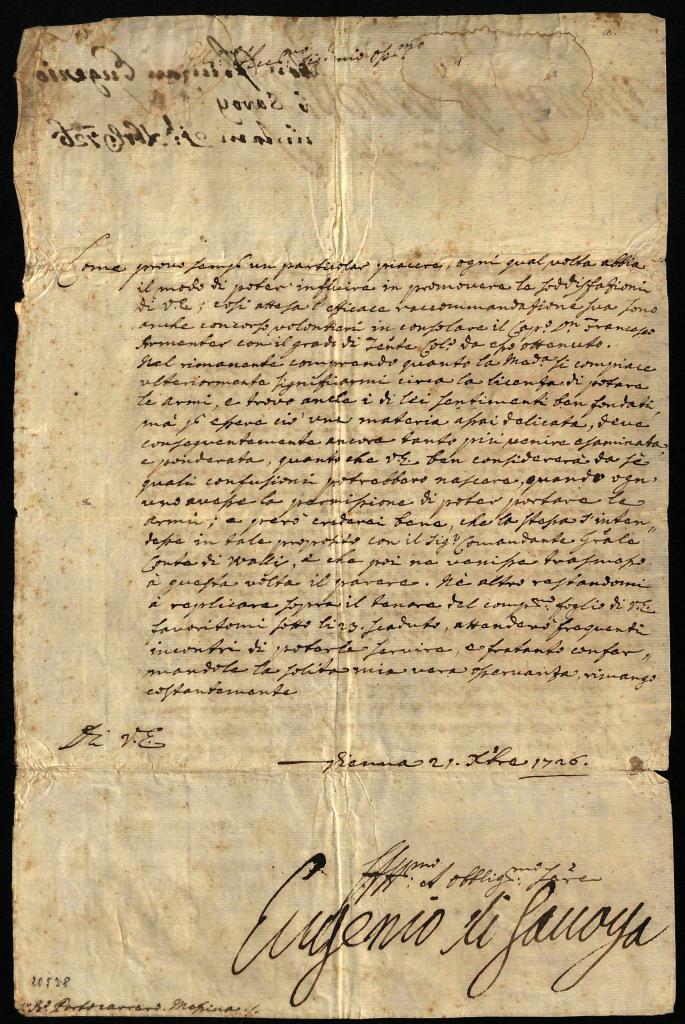 Come provo semp.e un particolar piacere, ogni qual volta abbia
il modo di poter influire in promovere le soddisfationi
di V.E.; così attesa l'efficace raccommandatione sua sono
anche concorso volontieri in consolare il Cap.o Francesco
Armenter con il grado di Tente Col.o da esso ottenuto.
Nel rimanente comprendo quanto la Med.a si compiace
ulteriormente significarmi circa la licenza di portare
le armi, e trovo anche i di lei sentimenti ben fondati,
mà p. essere ciò una materia assai delicata, deve
conseguentemente ancora tanto più venire esaminata,
e ponderata, quanto che V.E. ben considererà da sè
quali confusioni potrebbero nascere, quando ogn'
uno avesse la permissione di poter portare le
armi; e però crederei bene, che la stessa s'inten„
desse in tale proposito con il Sig.r Comandante Gr̃ale
Conte di Wallis, e che poi ne venisse trasmesso
à questa volta il parere. Nè altro restandomi
à replicare sopra il tenore del comp.mo foglio di V.E.
favoritomi sotto li 23. scaduto, attenderò frequenti
incontri di poterle servire, e fratanto confer„
mandole la solita mia vera osservanza, rimango
costantemente
Di V.E.
Vienna 21. Xbre 1726.
Aff.mo et obblig.mo Ser.e
Eugenio di Savoya
20538
Portocarrero. Messina
Eugenio
Savoy